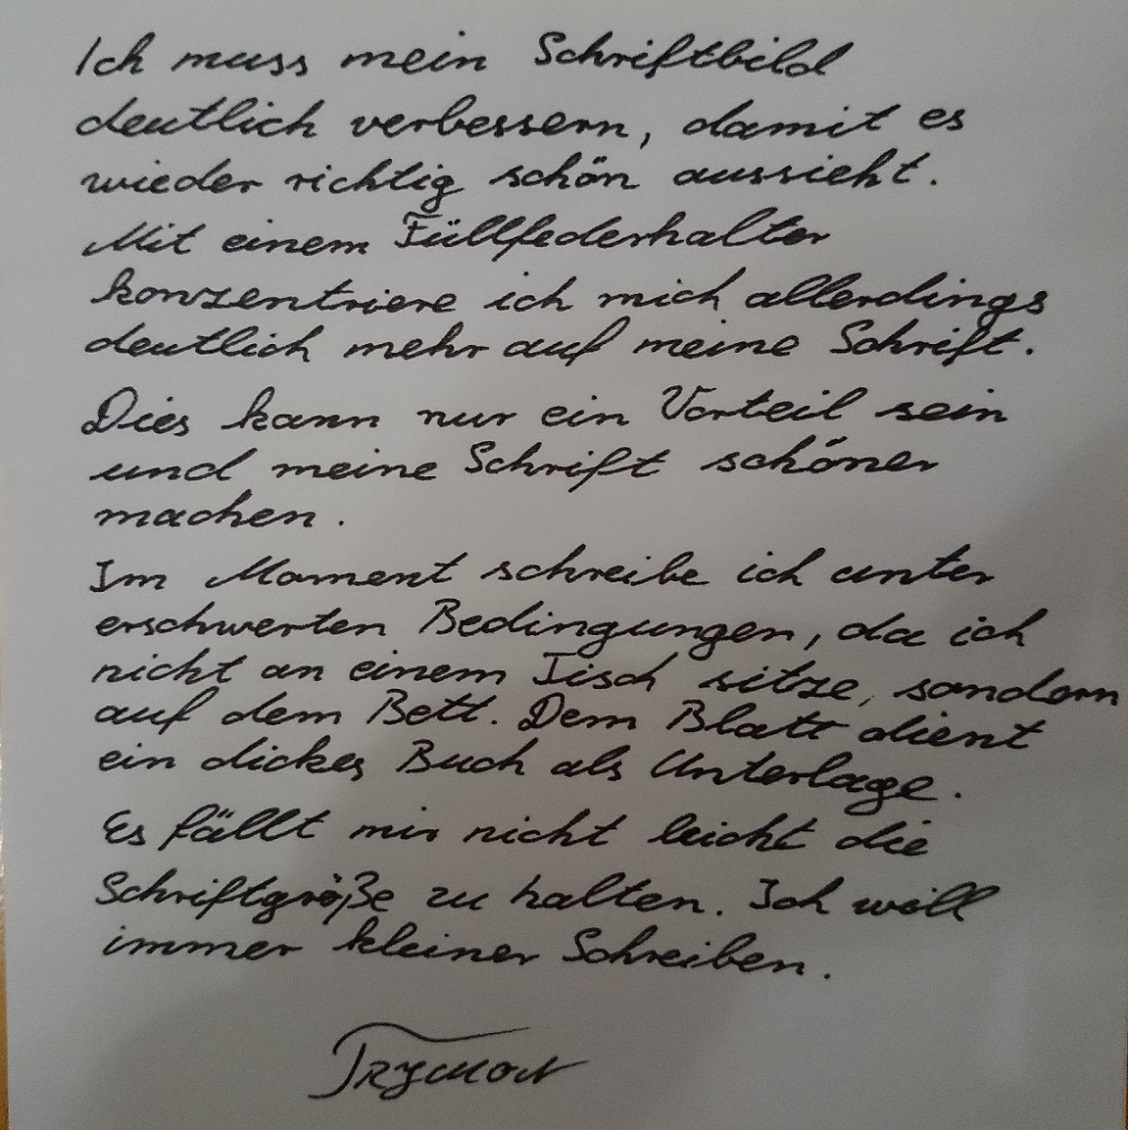 Ich muss mein Schriftbild
deutlich verbessern, damit es
wieder richtig schön aussieht.
Mit einem Füllfederhalter
konzentriere ich mich allerdings
deutlich mehr auf meine Schrift.
Dies kann nur ein Vorteil sein
und meine Schrift schöner
machen.
Im Moment schreibe ich unter
erschwerten Bedingungen, da ich
nicht an einem Tisch sitze, sondern
auf dem Bett. Dem Blatt dient
ein dickes Buch als Unterlage.
Es fällt mir nicht leicht die
Schriftgröße zu halten. Ich will
immer kleiner Schreiben.
Trymon